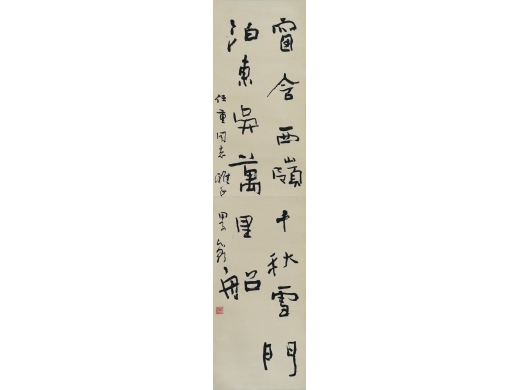 窗含西嶺千秋雪門
泊東吳萬里船
任重同志雅正